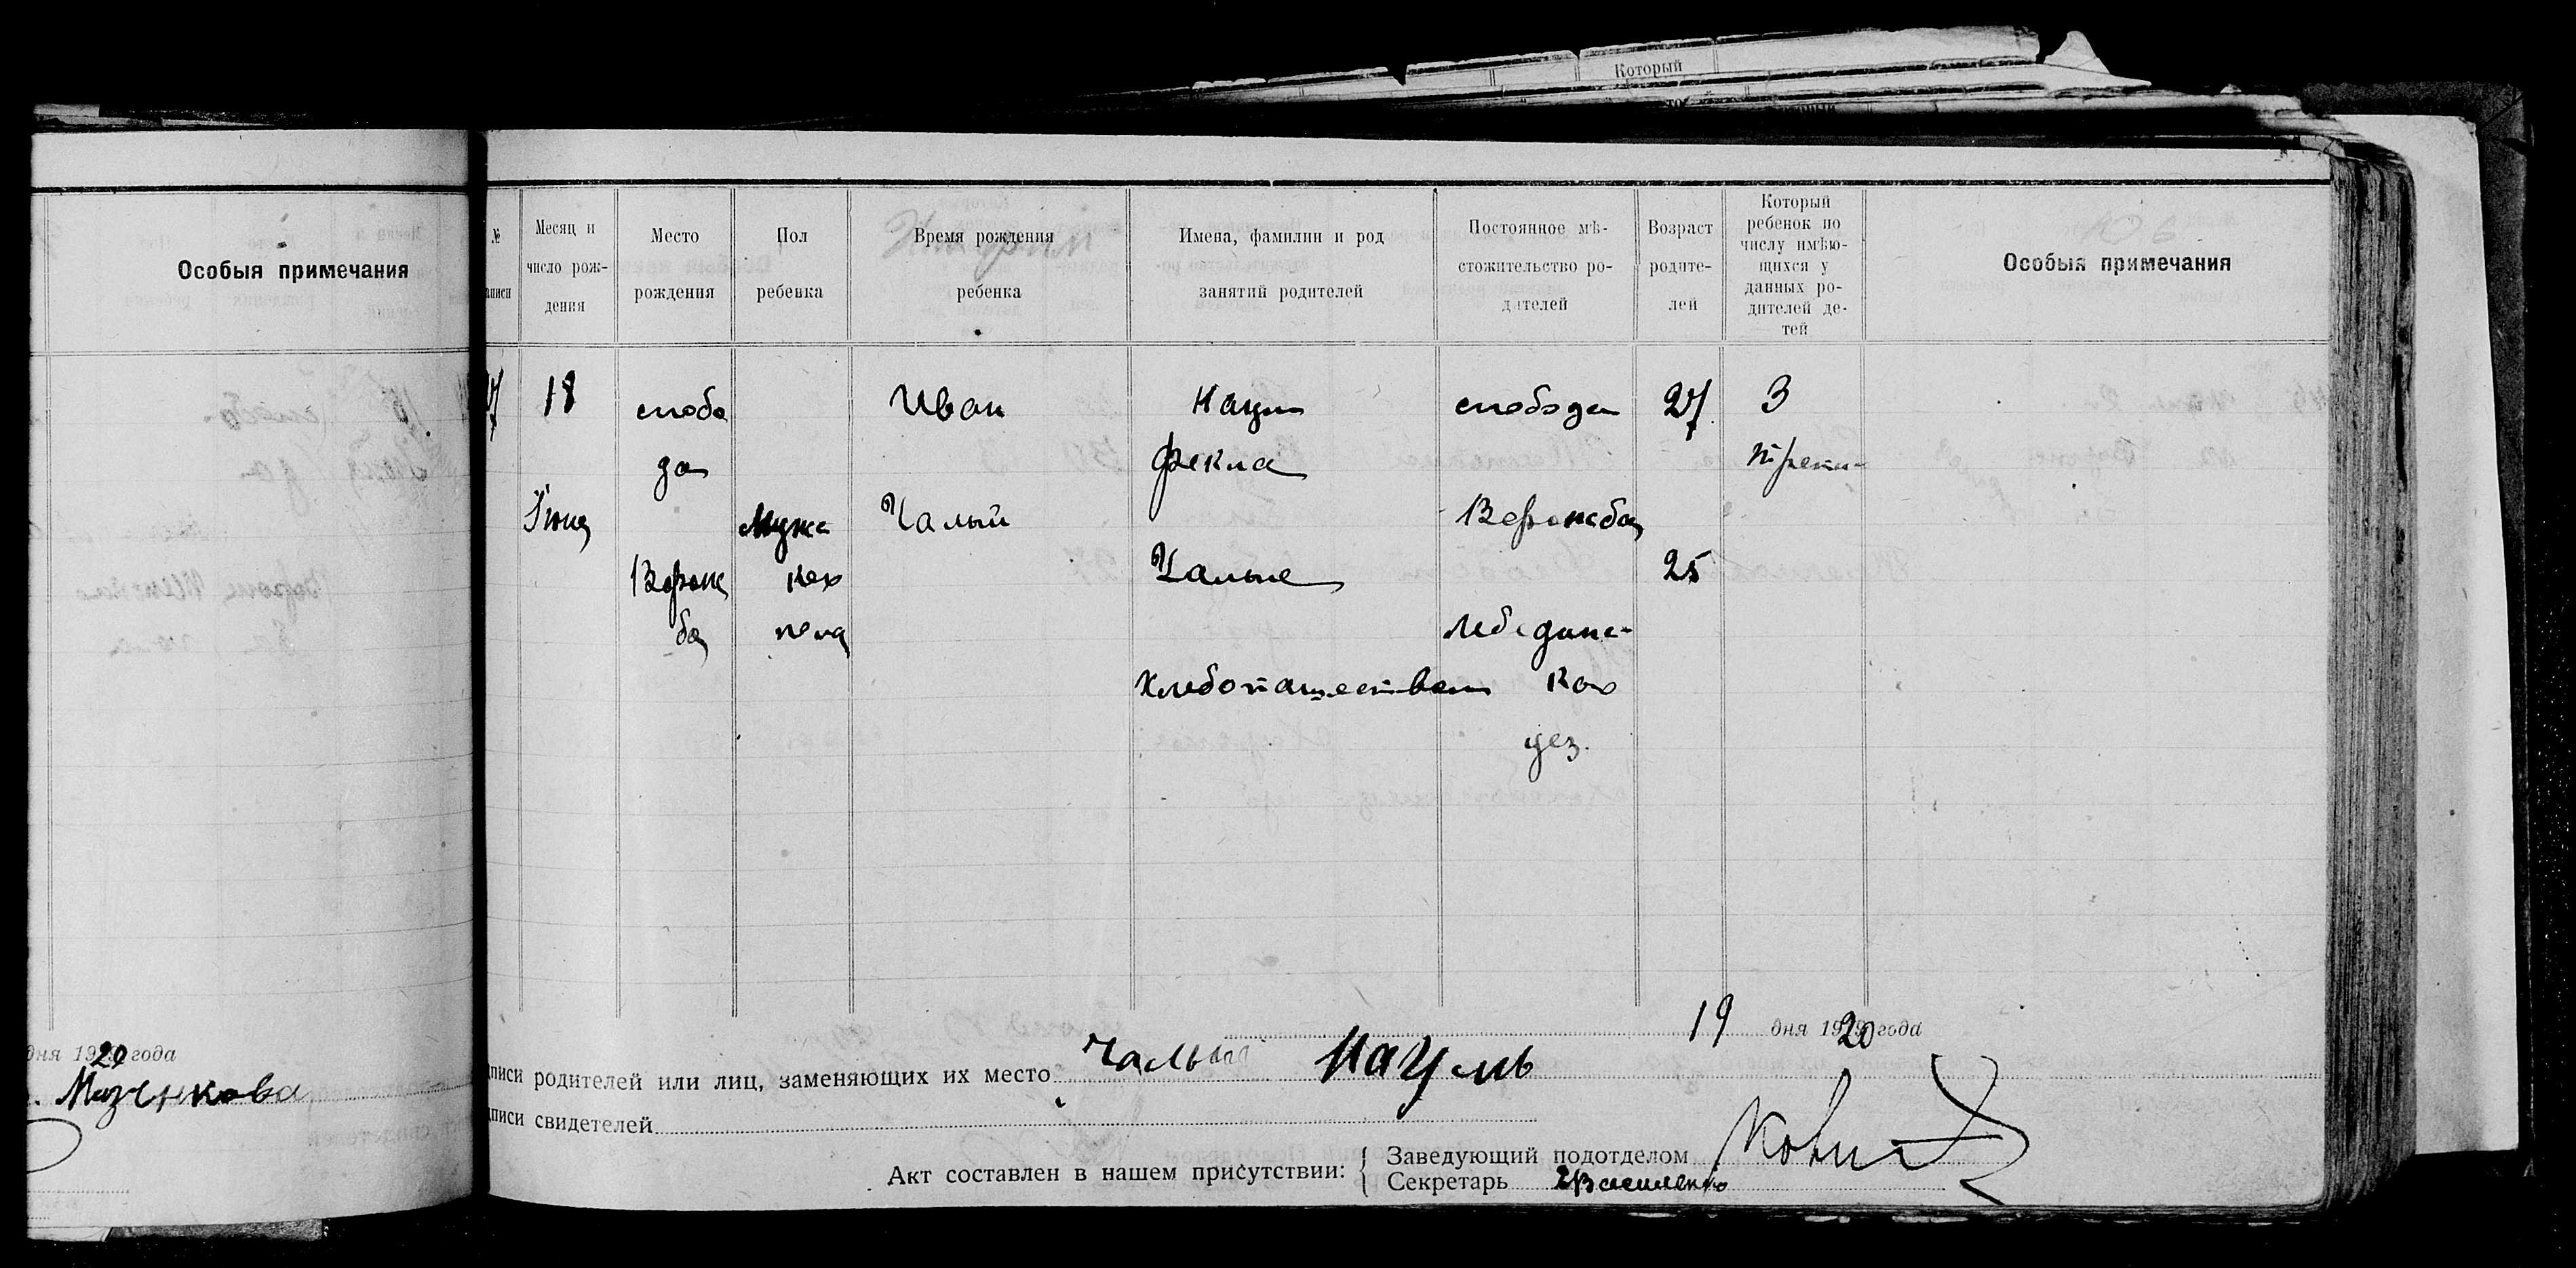 Который
Особыя примечания
дня 1920 года
Мазчнкова
№
аписи
Месяц и
число рож-
дения
Место
рождения
Пол
ребенка
Время рождения
ребенка
Имена, фамилии и род
занятий родителей
Постоянное мѣ-
стожительство ро-
дителей
Возраст
родите-
лей
Который
ребенок по
числу имѣю-
щихся у
данных ро-
дителей де-
тей
Особыя примечания
18
Июня
слобо
да
Ворож
ба
Мужс
ках
пола
Иван
Чалый
Наум
Фекла
Чалые
Хлебопашеством
слобода
Ворожба
Лебединс-
ках
уез.
27
25
3
трети-
19 дня 1920 года
писи родителей или лиц, заменяющих их место Чалый Наумъ
писи свидетелей
Акт составлен в нашем присутствии:
Заведующий подотделом
Секретарь Василенко